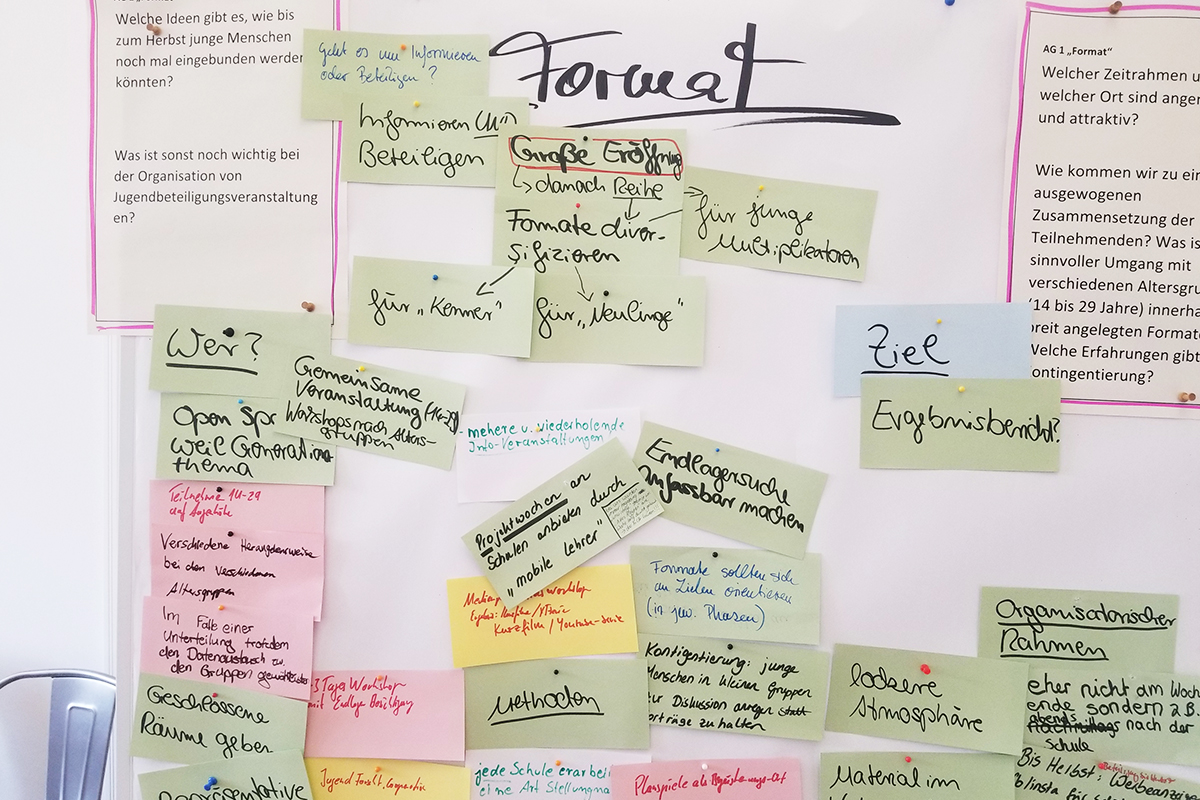 Welche Ideen gibt es, wie bis
zum Herbst junge Menschen
noch mal eingebunden werden
könnten?
Was ist sonst noch wichtig bei
der Organisation von
Jugendbeteiligungsveranstaltung
en?
Geht es um Informieren
oder Beteiligen?
Format
Informieren UND
Beteiligen
Große Eröffnung
danach Reihe
Formate diver-
sifizieren
für junge
Multiplikatoren
für „Kenner"
für „Neulinge"
AG 1 „Format"
Welcher Zeitrahmen u
welcher Ort sind ange
und attraktiv?
Wie kommen wir zu ein
ausgewogenen
Zusammensetzung der
Teilnehmenden? Was is
sinnvoller Umgang mit
verschiedenen Altersgru
(14 bis 29 Jahre) innerha
breit angelegten Formate
Welche Erfahrungen gibt
ontingentierung?
Wer?
Gemeinsame
Veranstaltung (14-29)
Workshops nach Alters-
gruppen
Open Spa
weil Generations
thema
Teilnahme 14-29
auf Augenhöhe
Verschiedene Herangehensweise
bei den verschiedenen
Altersgruppen
Im Fall einer
Unterteilung trotzdem
den Datenaustausch zw.
den Gruppen
Geschlossene
Räume geben
Repräsentative
- mehere u. wiederholende
Info-Veranstaltungen
Projektwochen an
Schulen anbieten durch
„mobile Lehrer"
Endlagersuche
anfassbar machen
Ziel
Ergebnisbericht?
workshop
Kurzfilm / Youtube-Serie
Formate sollten sich
an Zielen orientieren
(in jew. Phasen)
Kontigentierung: junge
Menschen in kleiner Gruppen
zur Diskussion anregen statt
Vorträge zu halten
3 Tages Workshop
mit Endlager Besichtigung
Methoden
Jugend Forscht
jede Schule erarbei
eine Art Stellungna
Planspiele als
lockere
Atmosphäre
Material im
Organisatorischer
Rahmen
eher nicht am Woch
ende sondern z.B.
abends
nachmittags nach der
Schule
Bis Herbst: Werbeanzeige